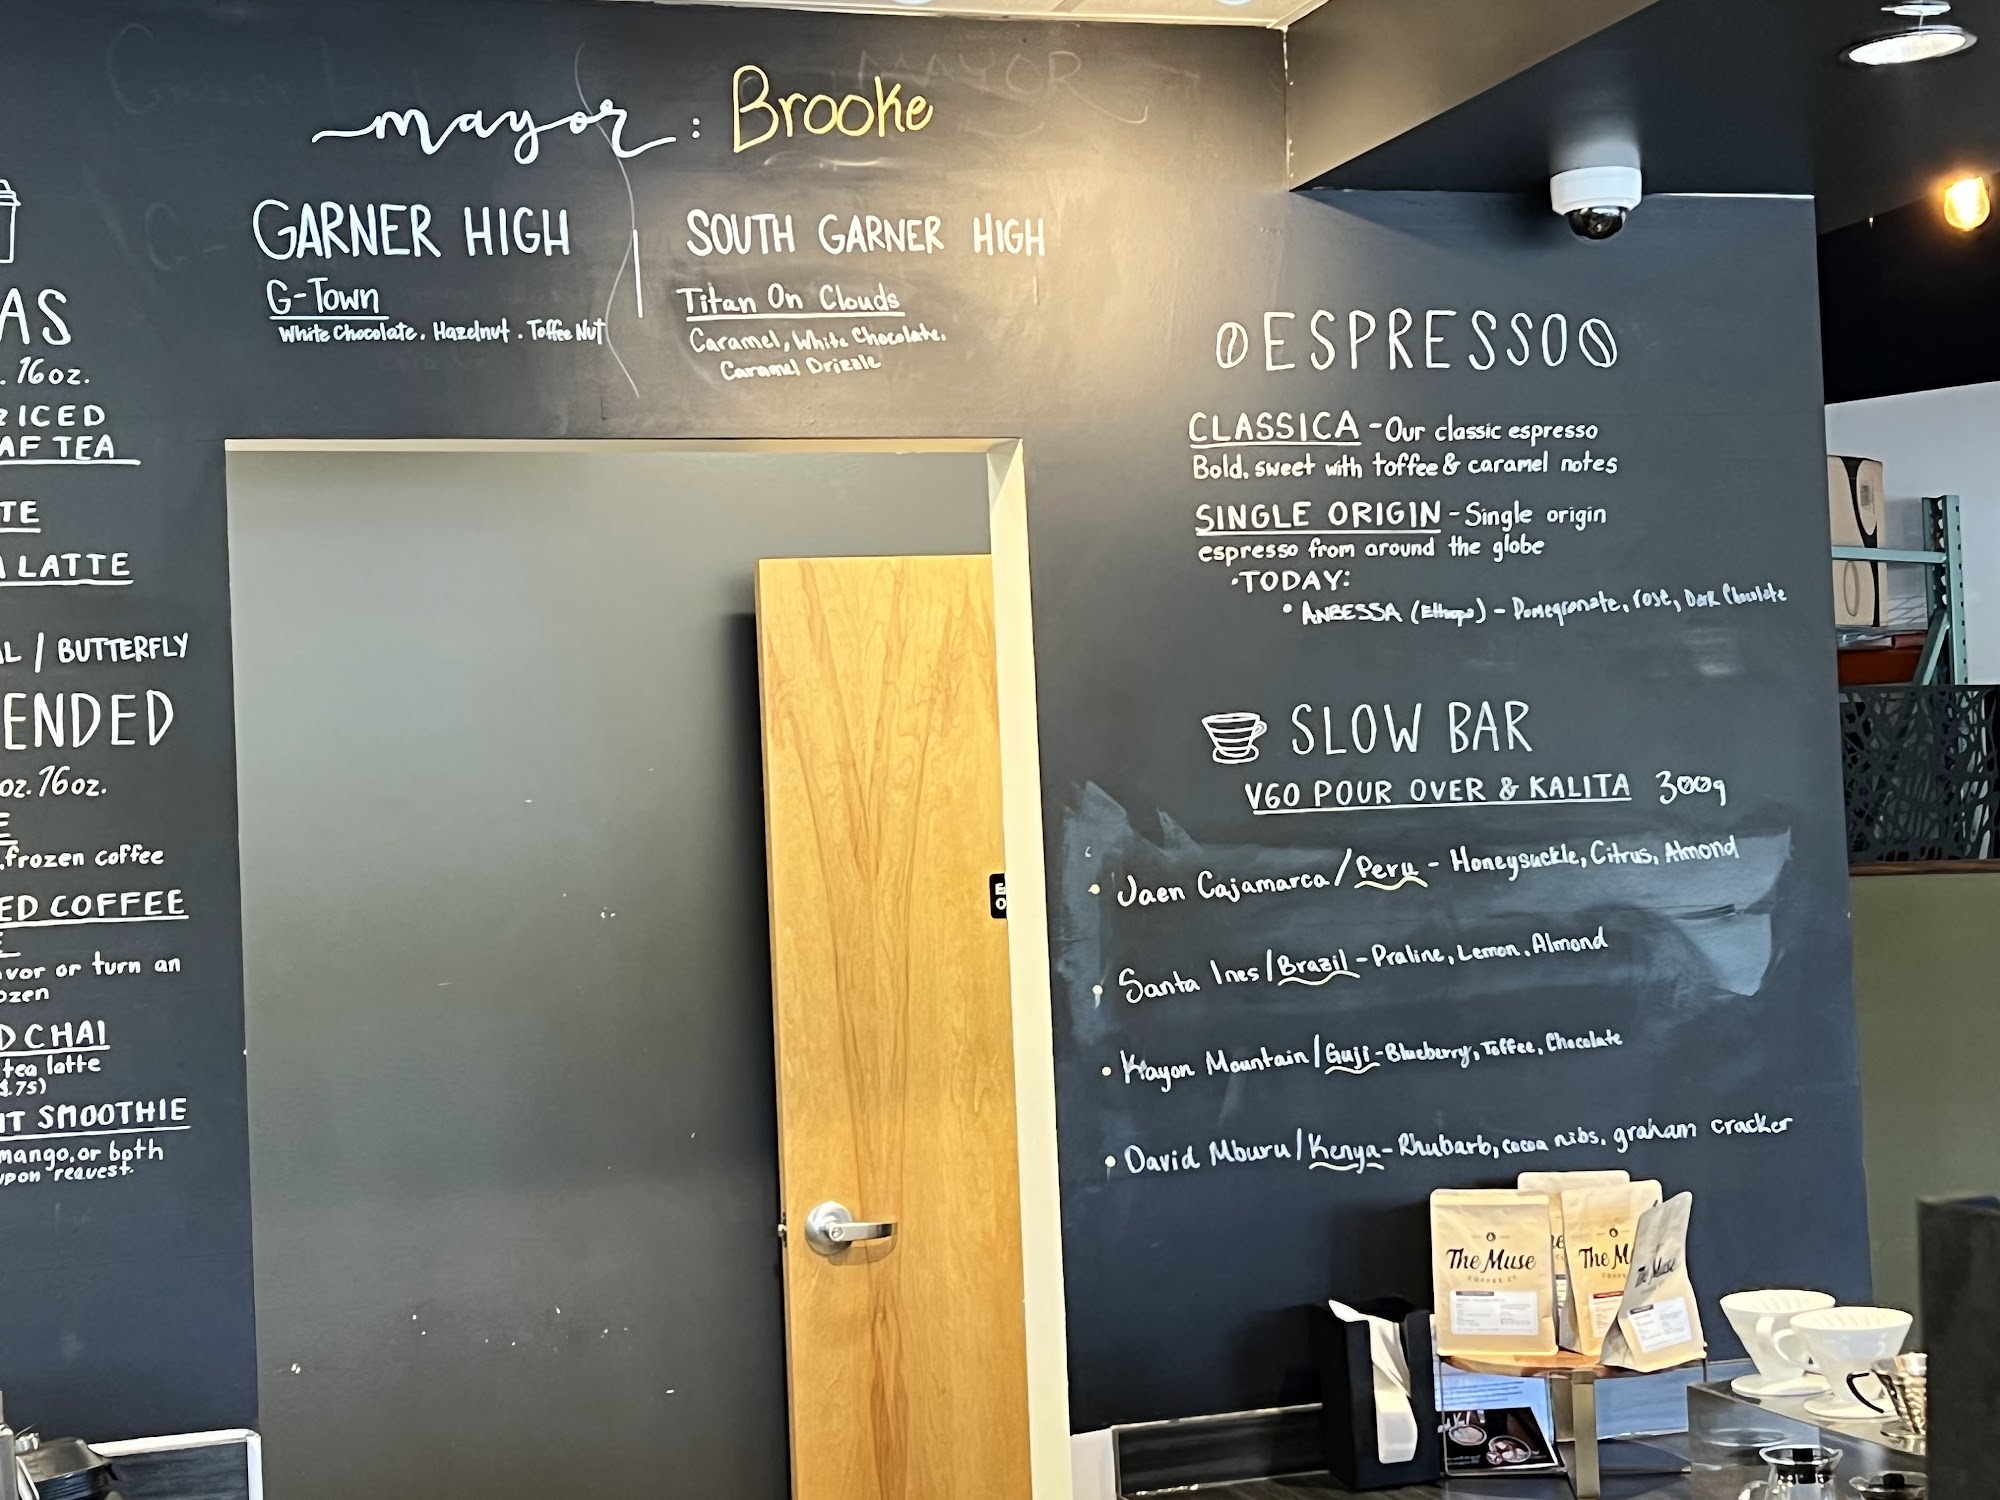 mayor : Brooke
GARNER HIGH
G-Town
White Chocolate. Hazelnut. Toffee Nut
SOUTH GARNER HIGH
Titan On Clouds
Caramel, White Chocolate.
Caramel Drizzle
AS
. 16oz.
ICED
AF TEA
TE
LATTE
L / BUTTERFLY
ENDED
oz. 16oz.
E
.frozen coffee
ED COFFEE
E
vor or turn an
ozen
D CHAI
tea latte
.75)
IT SMOOTHIE
mango. or both
upon request.
ESPRESSO
CLASSICA - Our classic espresso
Bold. sweet with toffee & caramel notes
SINGLE ORIGIN - Single origin
espresso from around the globe
• TODAY:
• ANBESSA (Ethopo) - Pomegranate, rose, Dark Chocolate
SLOW BAR
V60 POUR OVER & KALITA 300g
• Jaen Cajamarca / Peru - Honeysuckle, Citrus, Almond
• Santa Ines / Brazil - Praline, Lemon, Almond
• Kayon Mountain / Guji - Blueberry, Toffee, Chocolate
• David Mburu / Kenya - Rhubarb, cocoa nibs, graham cracker
The Muse
COFFEE CO
The M
MAYOR